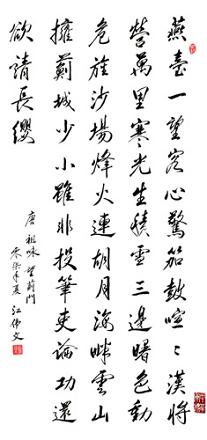 燕臺一望客心驚笳鼓喧〻漢將
營萬里寒光生積雪三邊曙色動
危旌沙場烽火連胡月海畔雲山
擁薊城少小雖非投筆吏論功還
欲請長纓
唐祖咏望薊門
零柒年夏江伟文